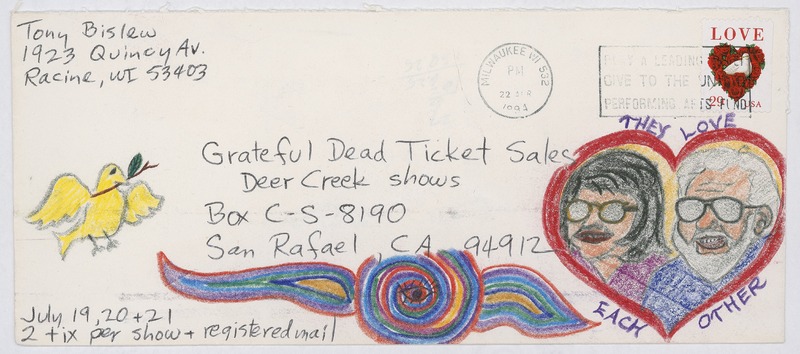 Tony Bislew
1923 Quincy Av.
Racine, WI 53403
MILWAUKEE WI 532
PM
22
1994
LOVE
29
USA
A LEADING
GIVE TO THE
PERFORMING ARTS FUND
THEY LOVE
EACH OTHER
Grateful Dead Ticket Sales
Deer Creek shows
Box C-S-8190
San Rafael, CA 94912
July 19, 20 + 21
2 tix per show + registered mail